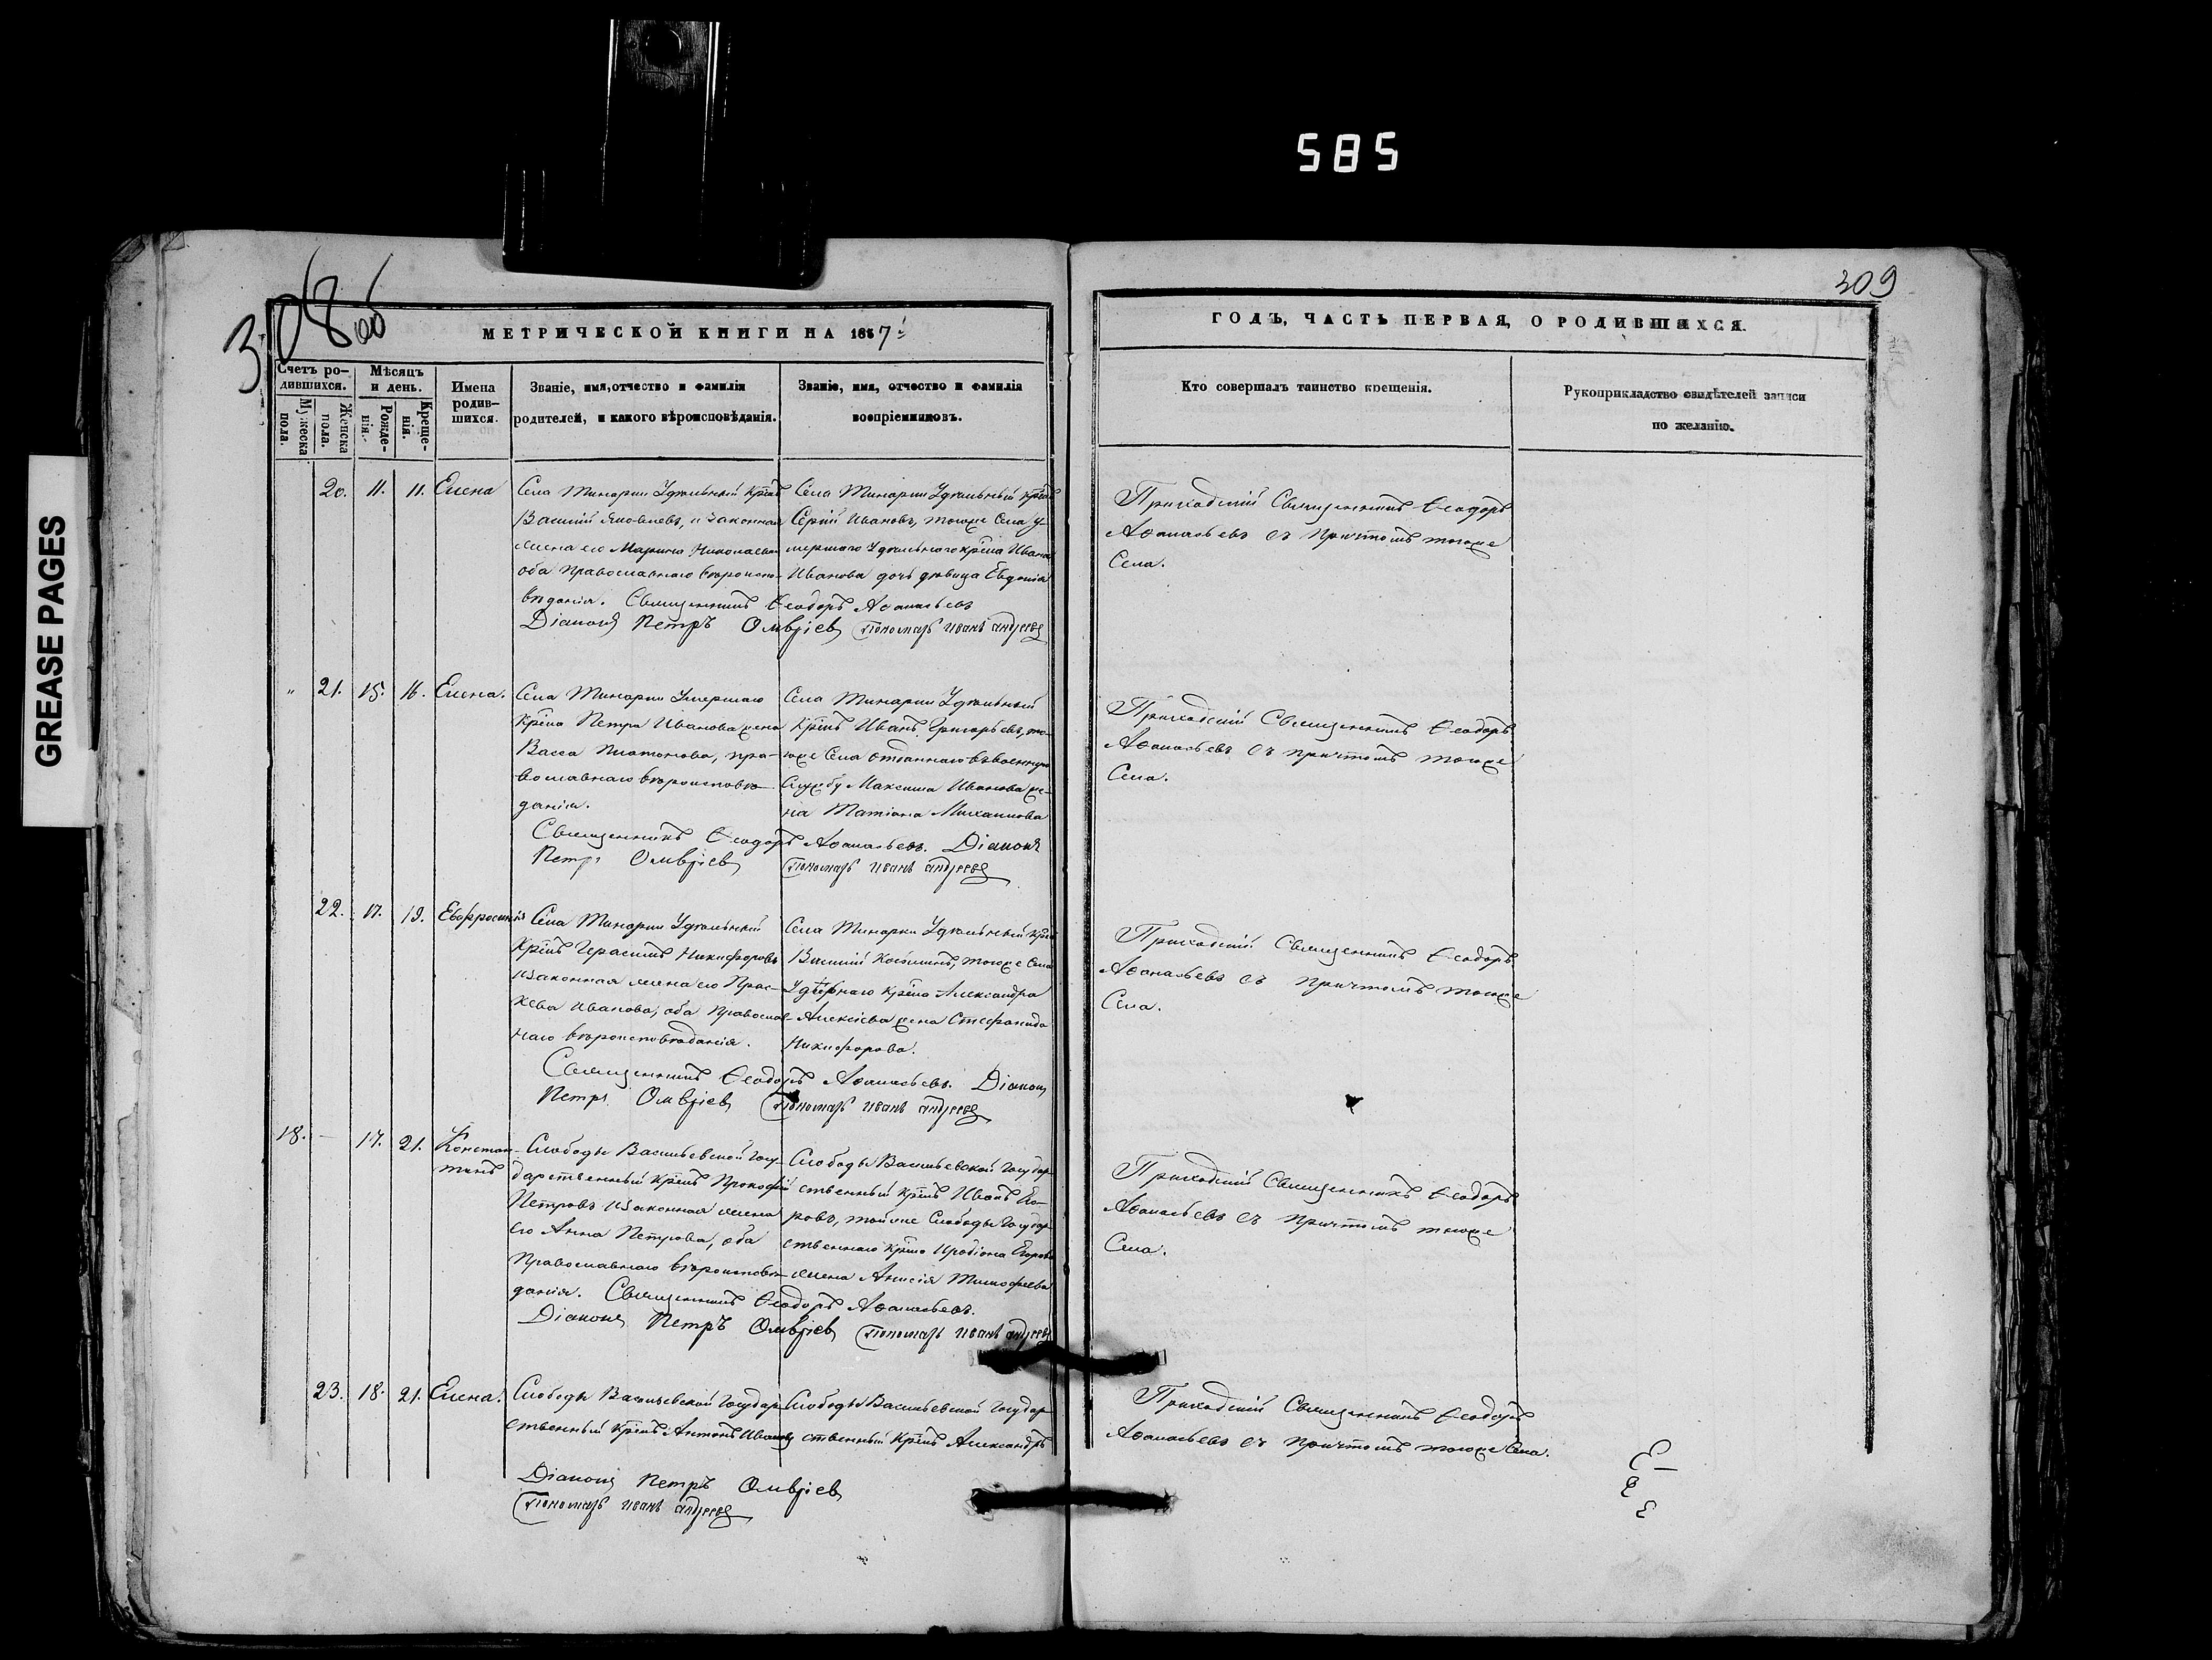 585
GREASE PAGES
308 об
309
МЕТРИЧЕСКОЙ КНИГИ НА 1857й
ГОДЪ, ЧАСТЬ ПЕРВАЯ, О РОДИВШИХСЯ.
Счетъ ро-
дившихся.
Мужеска
пола.
Женска
пола.
Мѣсяцъ
и день.
Рожде-
нія.
Креще-
нія.
Имена
родив-
шихся.
Званіе, имя, отчество и фамилія
родителей, и какого вѣроисповѣданія.
Званіе, имя, отчество и фамилія
воспріемниковъ.
Кто совершалъ таинство крещенія.
Рукоприкладство свидѣтелей записи
по желанію.
20. 11. 11. Елена
Села Тинарки Удѣльный Крнъ
Василій Яковлевъ, и законная
жена его Марина Николаева
оба Православнаго вѣроиспо-
вѣданія. Священникъ Ѳеодоръ Аѳанасьевъ
Діаконъ Петръ Олмвріевъ Пономарь Иванъ Андреевъ
Села Тинарки Удѣльный Крнъ
Сергій Ивановъ, тогоже Села у-
мершаго Удѣльнаго крна Ивана
Иванова дочь дѣвица Евдокія
Приходскій Священникъ Ѳеодоръ
Аѳанасьевъ съ Причтомъ тогоже
Села.
" 21. 15. 16. Елена.
Села Тинарки Умершаго
Крна Петра Иванова жена
Васса Платонова, пра-
вославнаго вѣроисповѣ-
данія.
Села Тинарки Удѣльный
Крнъ Иванъ Григорьевъ, то-
гоже Села отданнаго въ военную
Службу Максима Иванова же-
на Татіана Михаилова
Священникъ Ѳеодоръ Аѳанасьевъ. Діаконъ
Петръ Олмвріевъ Пономарь Иванъ Андреевъ
Приходскій Священникъ Ѳеодоръ
Аѳанасьевъ съ причтомъ тогоже
Села.
22. 17. 19. Евфросинія
Села Тинарки Удѣльный
Крнъ Герасимъ Никифоровъ
и законная жена его Прас-
кева Иванова, оба Православ-
наго вѣроисповѣданія.
Села Тинарки Удѣльный Крнъ
Василій Косминъ, тогоже Села
Удѣльнаго Крна Александра
Алексіева жена Стефанида
Никифорова.
Священникъ Ѳеодоръ Аѳанасьевъ. Діаконъ
Петръ Олмвріевъ Пономарь Иванъ Андреевъ
Приходскій Священникъ Ѳеодоръ
Аѳанасьевъ съ Причтомъ тогоже
Села.
18. — 17. 21. Констан-
тинъ
Слободы Васильевской Госу-
дарственный Крнъ Прокофій
Петровъ и законная жена
его Анна Петрова, оба
Православнаго вѣроисповѣ-
данія. Священникъ Ѳеодоръ Аѳанасьевъ.
Діаконъ Петръ Олмвріевъ Пономарь Иванъ Андреевъ
Слободы Васильевской Государ-
ственный Крнъ Иванъ
ровъ, тойже Слободы Государ-
ственнаго Крна Иродіона Егорова
жена Анисія Тимофеева
Приходскій Священникъ Ѳеодоръ
Аѳанасьевъ съ Причтомъ тогоже
Села.
23. 18. 21. Елена.
Слободы Васильевской Государ-
ственный Крнъ Антонъ Ивановъ
Слободы Васильевской Государ-
ственный Крнъ Александръ
Діаконъ Петръ Олмвріевъ
Пономарь Иванъ Андреевъ
Приходскій Священникъ Ѳеодоръ
Аѳанасьевъ съ Причтомъ тогоже Села.